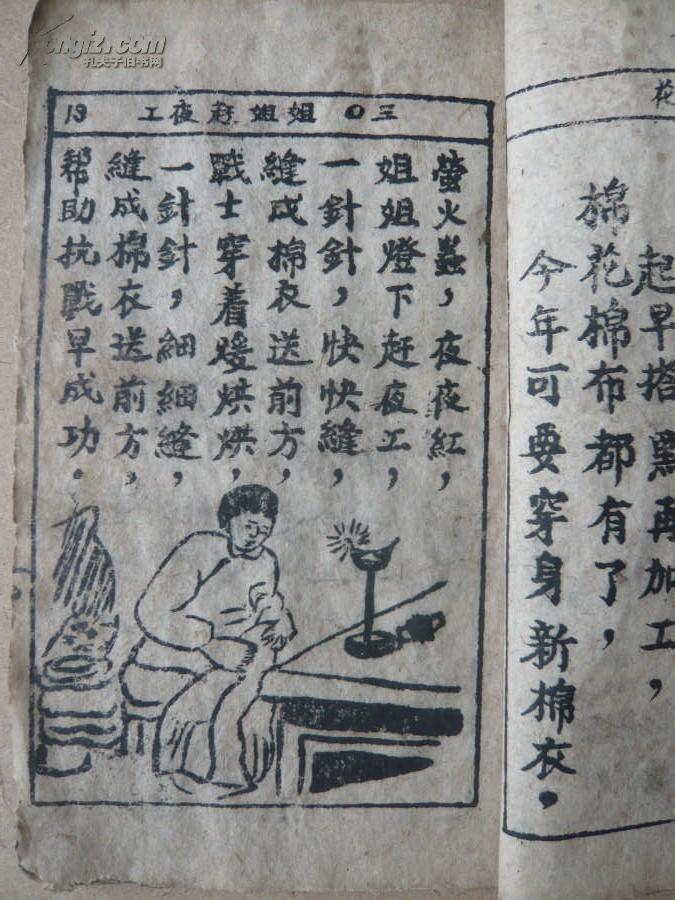 花
起早搭黑再加工，
棉花棉布都有了，
今年可要穿身新棉衣，
三〇 姐姐赶夜工
螢火蟲，夜夜紅，
姐姐燈下赶夜工，
一針針，快快縫，
縫成棉衣送前方，
戰士穿着煖烘烘，
一針針，細細縫，
縫成棉衣送前方，
幇助抗戰早成功．
Kongfz.com
孔夫子旧书网